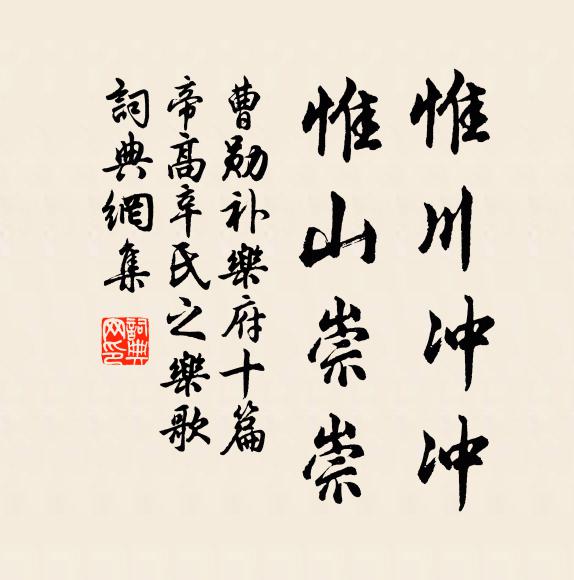 惟川冲冲
惟山崇崇
曹勛补樂府十篇
帝高辛氏之樂歌
詞典網集
詞典網印